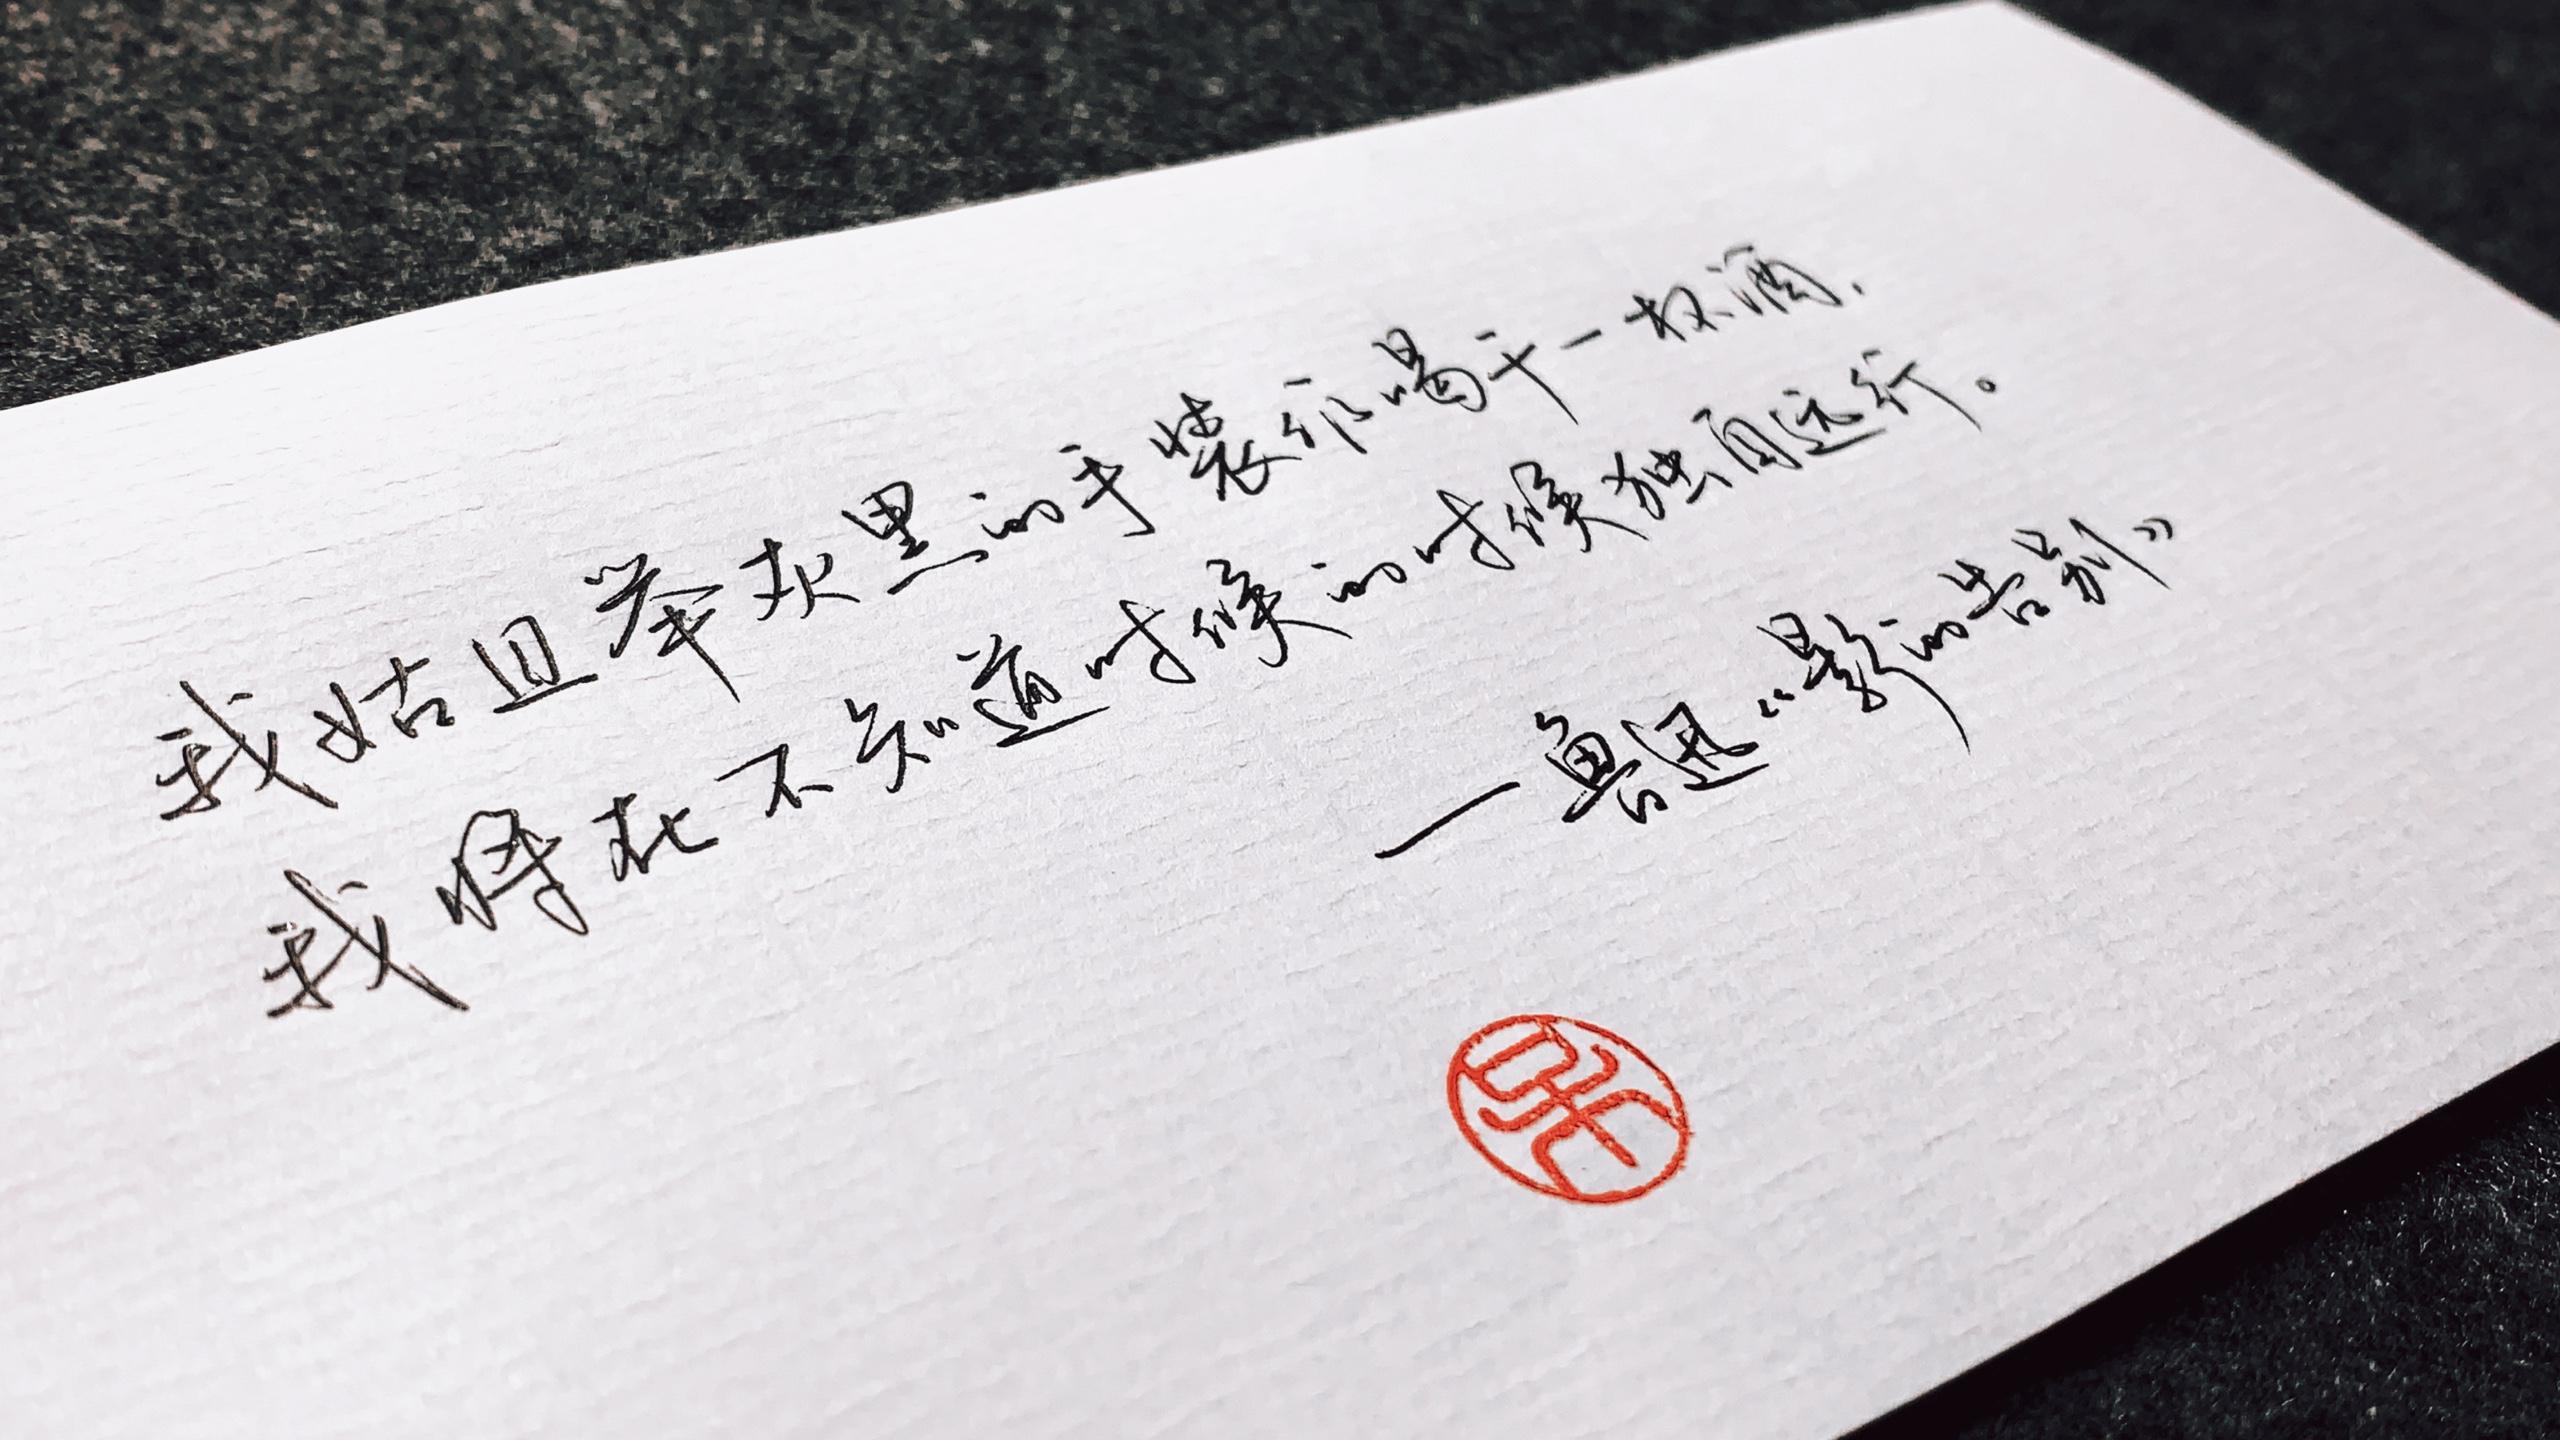 我姑且举灰黑的手装作喝干一杯酒，
我将在不知道时候的时候独自远行。
—鲁迅《影的告别》